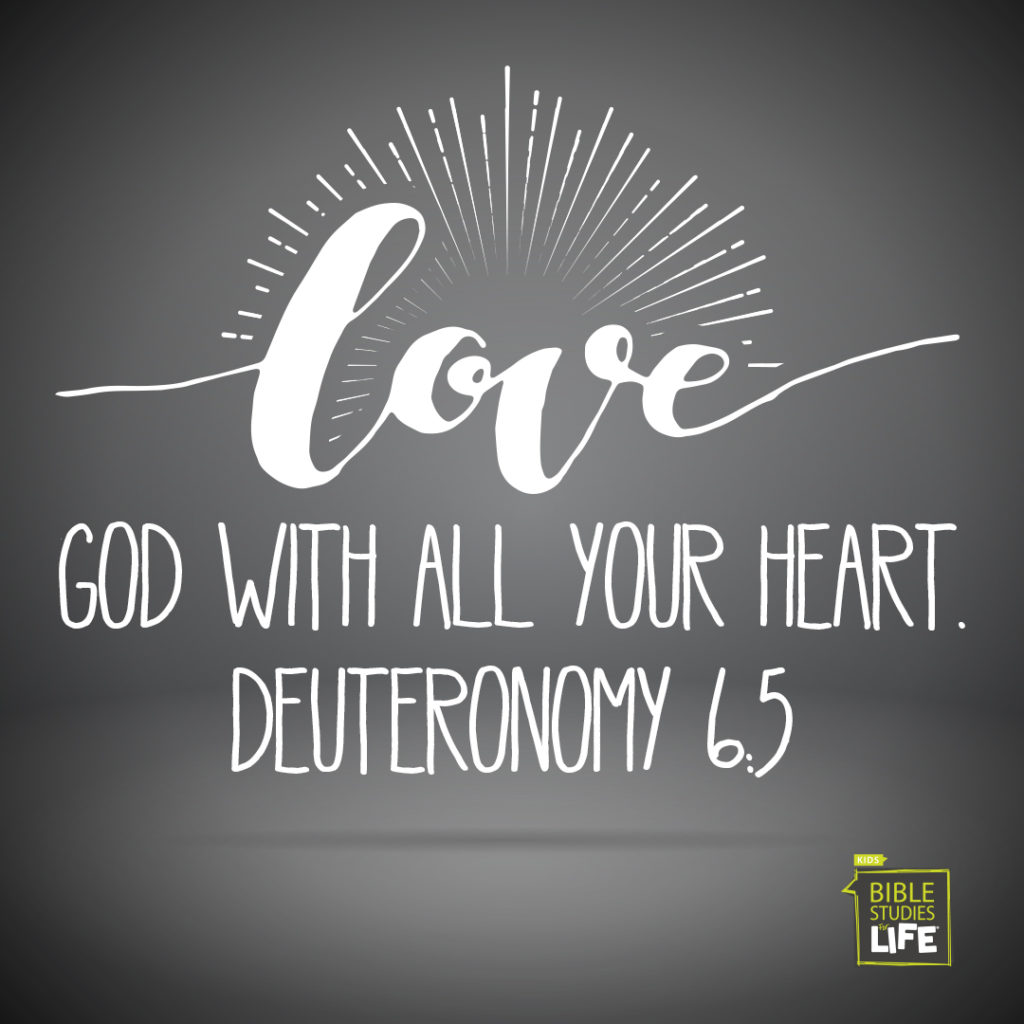 love
GOD WITH ALL YOUR HEART.
DEUTERONOMY 6:5
KIDS
BIBLE
STUDIES
for
LIFE®